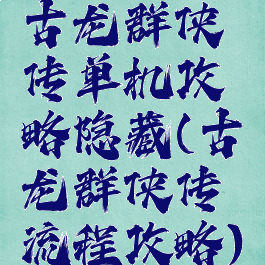 古龙群侠
传单机攻
略隐藏(古
龙群侠传
流程攻略)